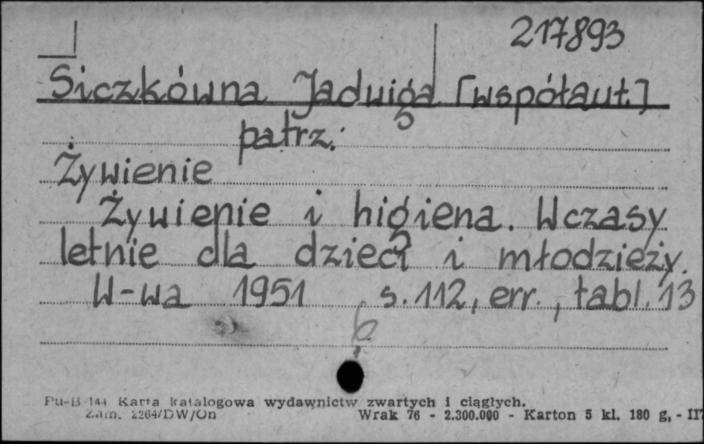 217893
Siczkówna Jadwiga [współaut.]
patrz:
Żywienie
Żywienie i higiena. Wczasy
letnie dla dzieci i młodzieży.
W-wa 1951 s. 112, err., tabl. 13
6
Pu-B 144 Karta katalogowa wydawnictw zwartych i ciągłych.
Zam. 2264/DW/On Wrak 76 - 2.300.000 - Karton 5 kl. 180 g, - III